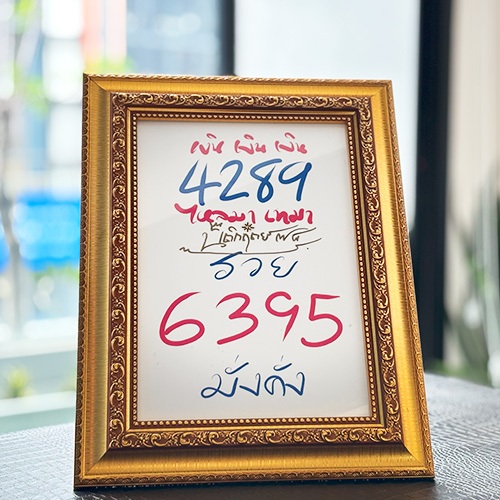 เงิน เงิน เงิน
4289
ไหลมา เทมา
รวย
6395
มั่งคั่ง